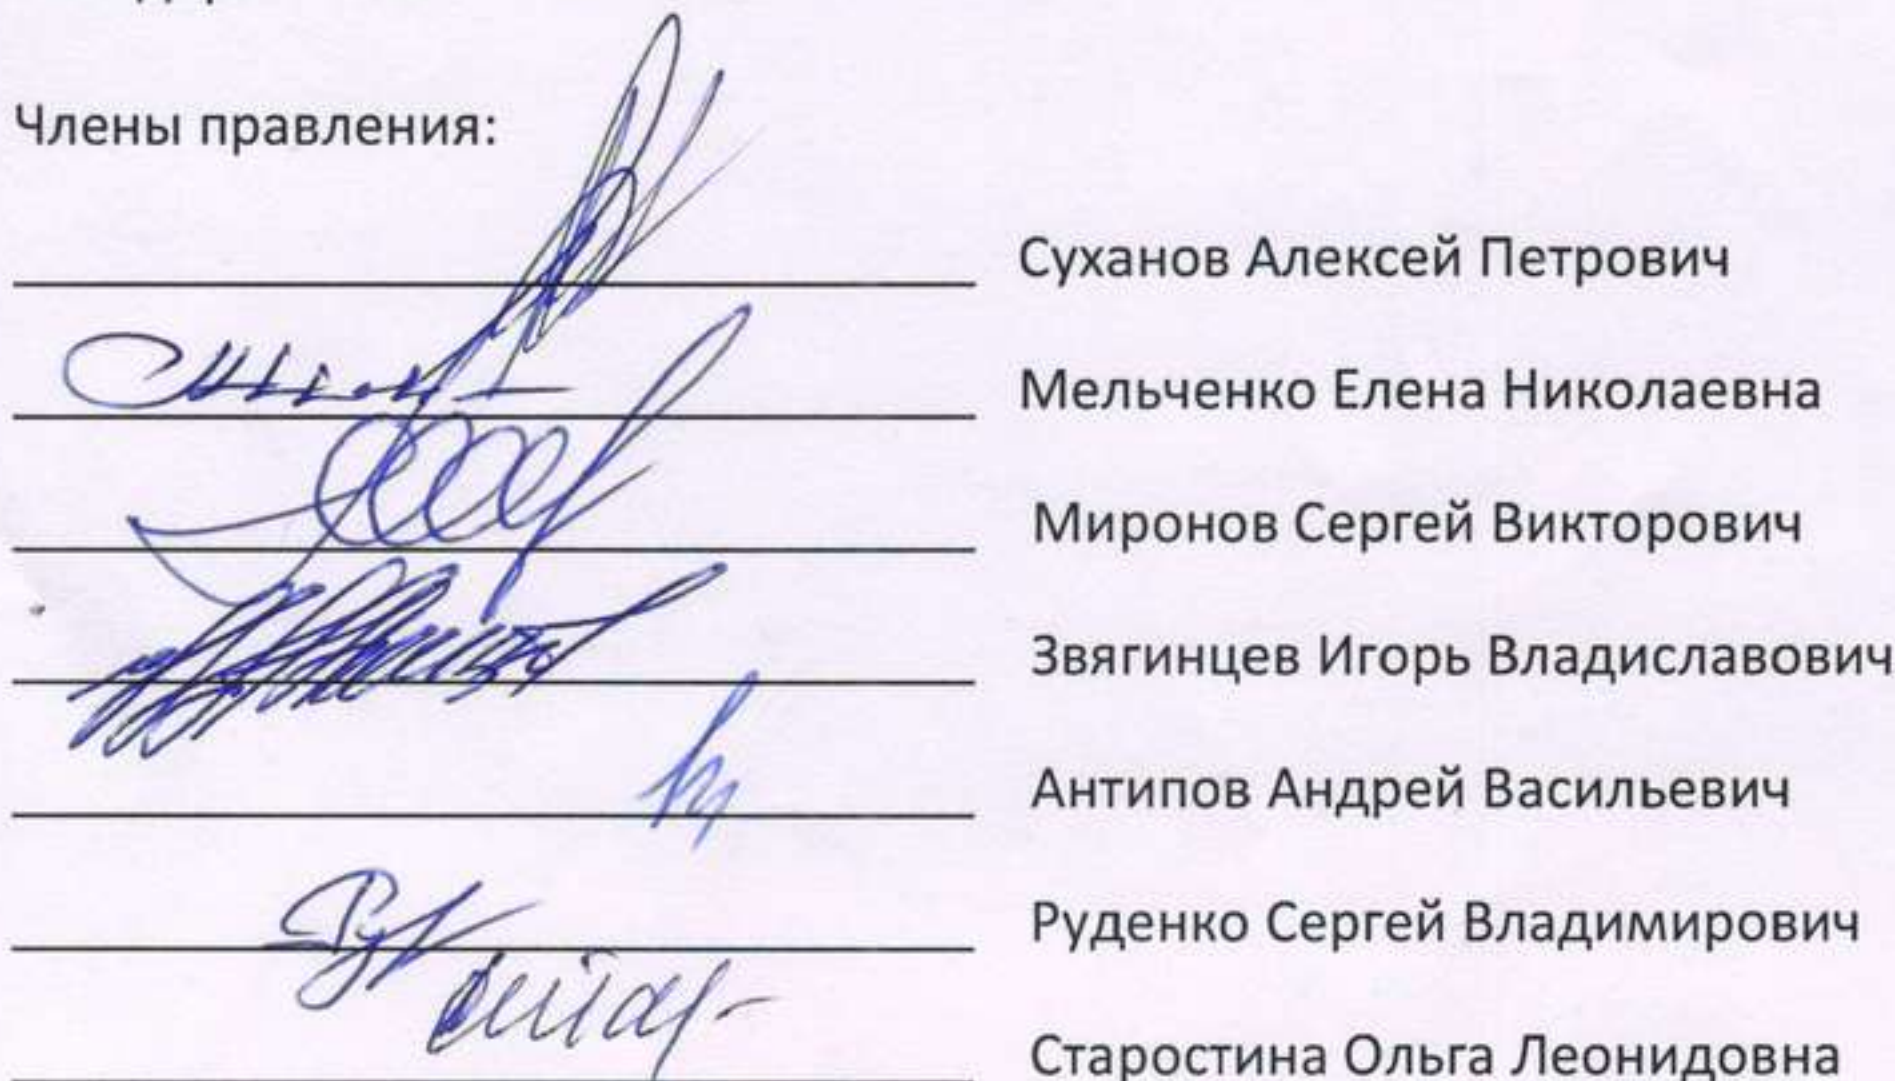 Члены правления:
Суханов Алексей Петрович
Мельченко Елена Николаевна
Миронов Сергей Викторович
Звягинцев Игорь Владиславович
Антипов Андрей Васильевич
Руденко Сергей Владимирович
Старостина Ольга Леонидовна